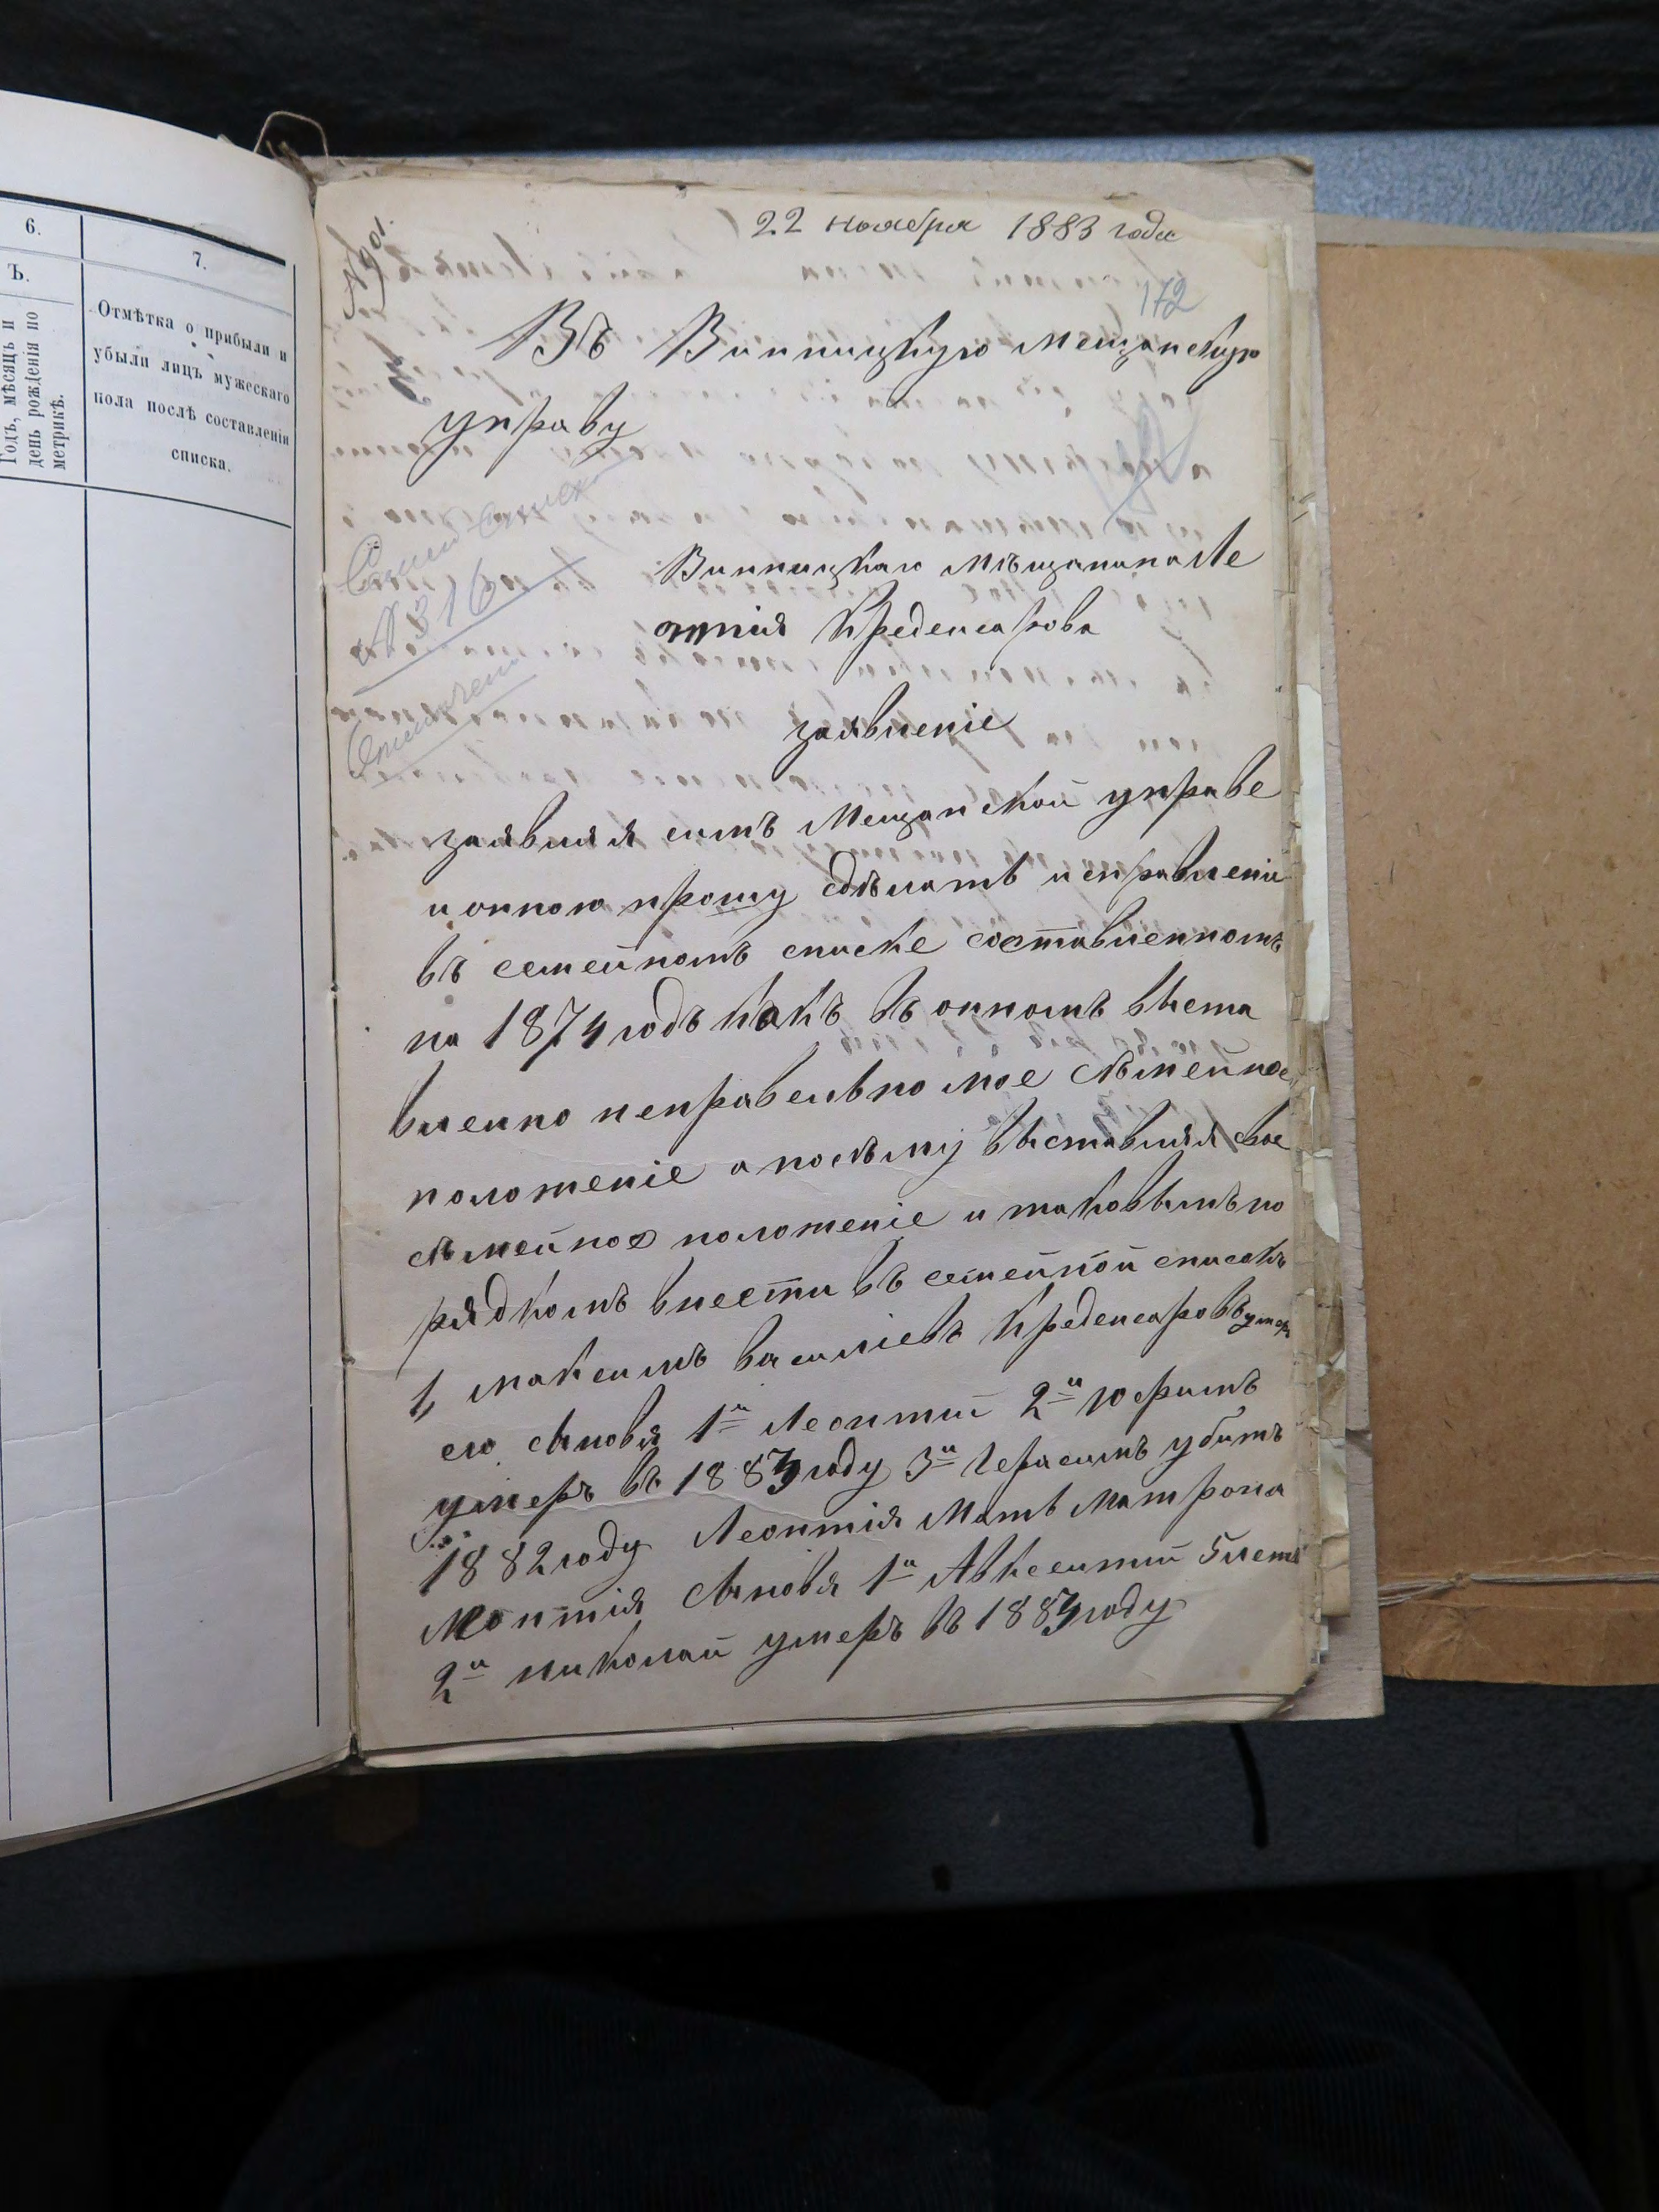 6.
7.
Ъ.
Годъ, мѣсяцъ и
день рожденія по
метрикѣ.
Отмѣтка о прибыли и
убыли лицъ мужескаго
пола послѣ составленія
списка.
22 ноября 1883 года
172
Въ Винницкую мещанскую
управу
№ 316
Винницкаго мѣщанина Ле
онтія Креденсарова
заявленіе
заявляя симъ Мещанской управе
и онною прошу сдѣлать исправленіи
въ семейномъ списке составленномъ
на 1874 годъ какъ въ онномъ выста
вленно неправельно мое сѣмейное
положеніе а посѣму выставляя свое
сѣмейное положеніе и таковымъ по
рядкомъ внести въ семейной списокъ
1, максимъ василіевъ Креденсаровъ умеръ
его сыновя 1й Леонтий 2й юфимъ
умеръ въ 1883 году 3й Герасимъ убитъ
1882 году Леонтія Мать Матрона
Леонтія сыновя 1й Авксентий 5 летъ
2й николай умеръ въ 1883 году